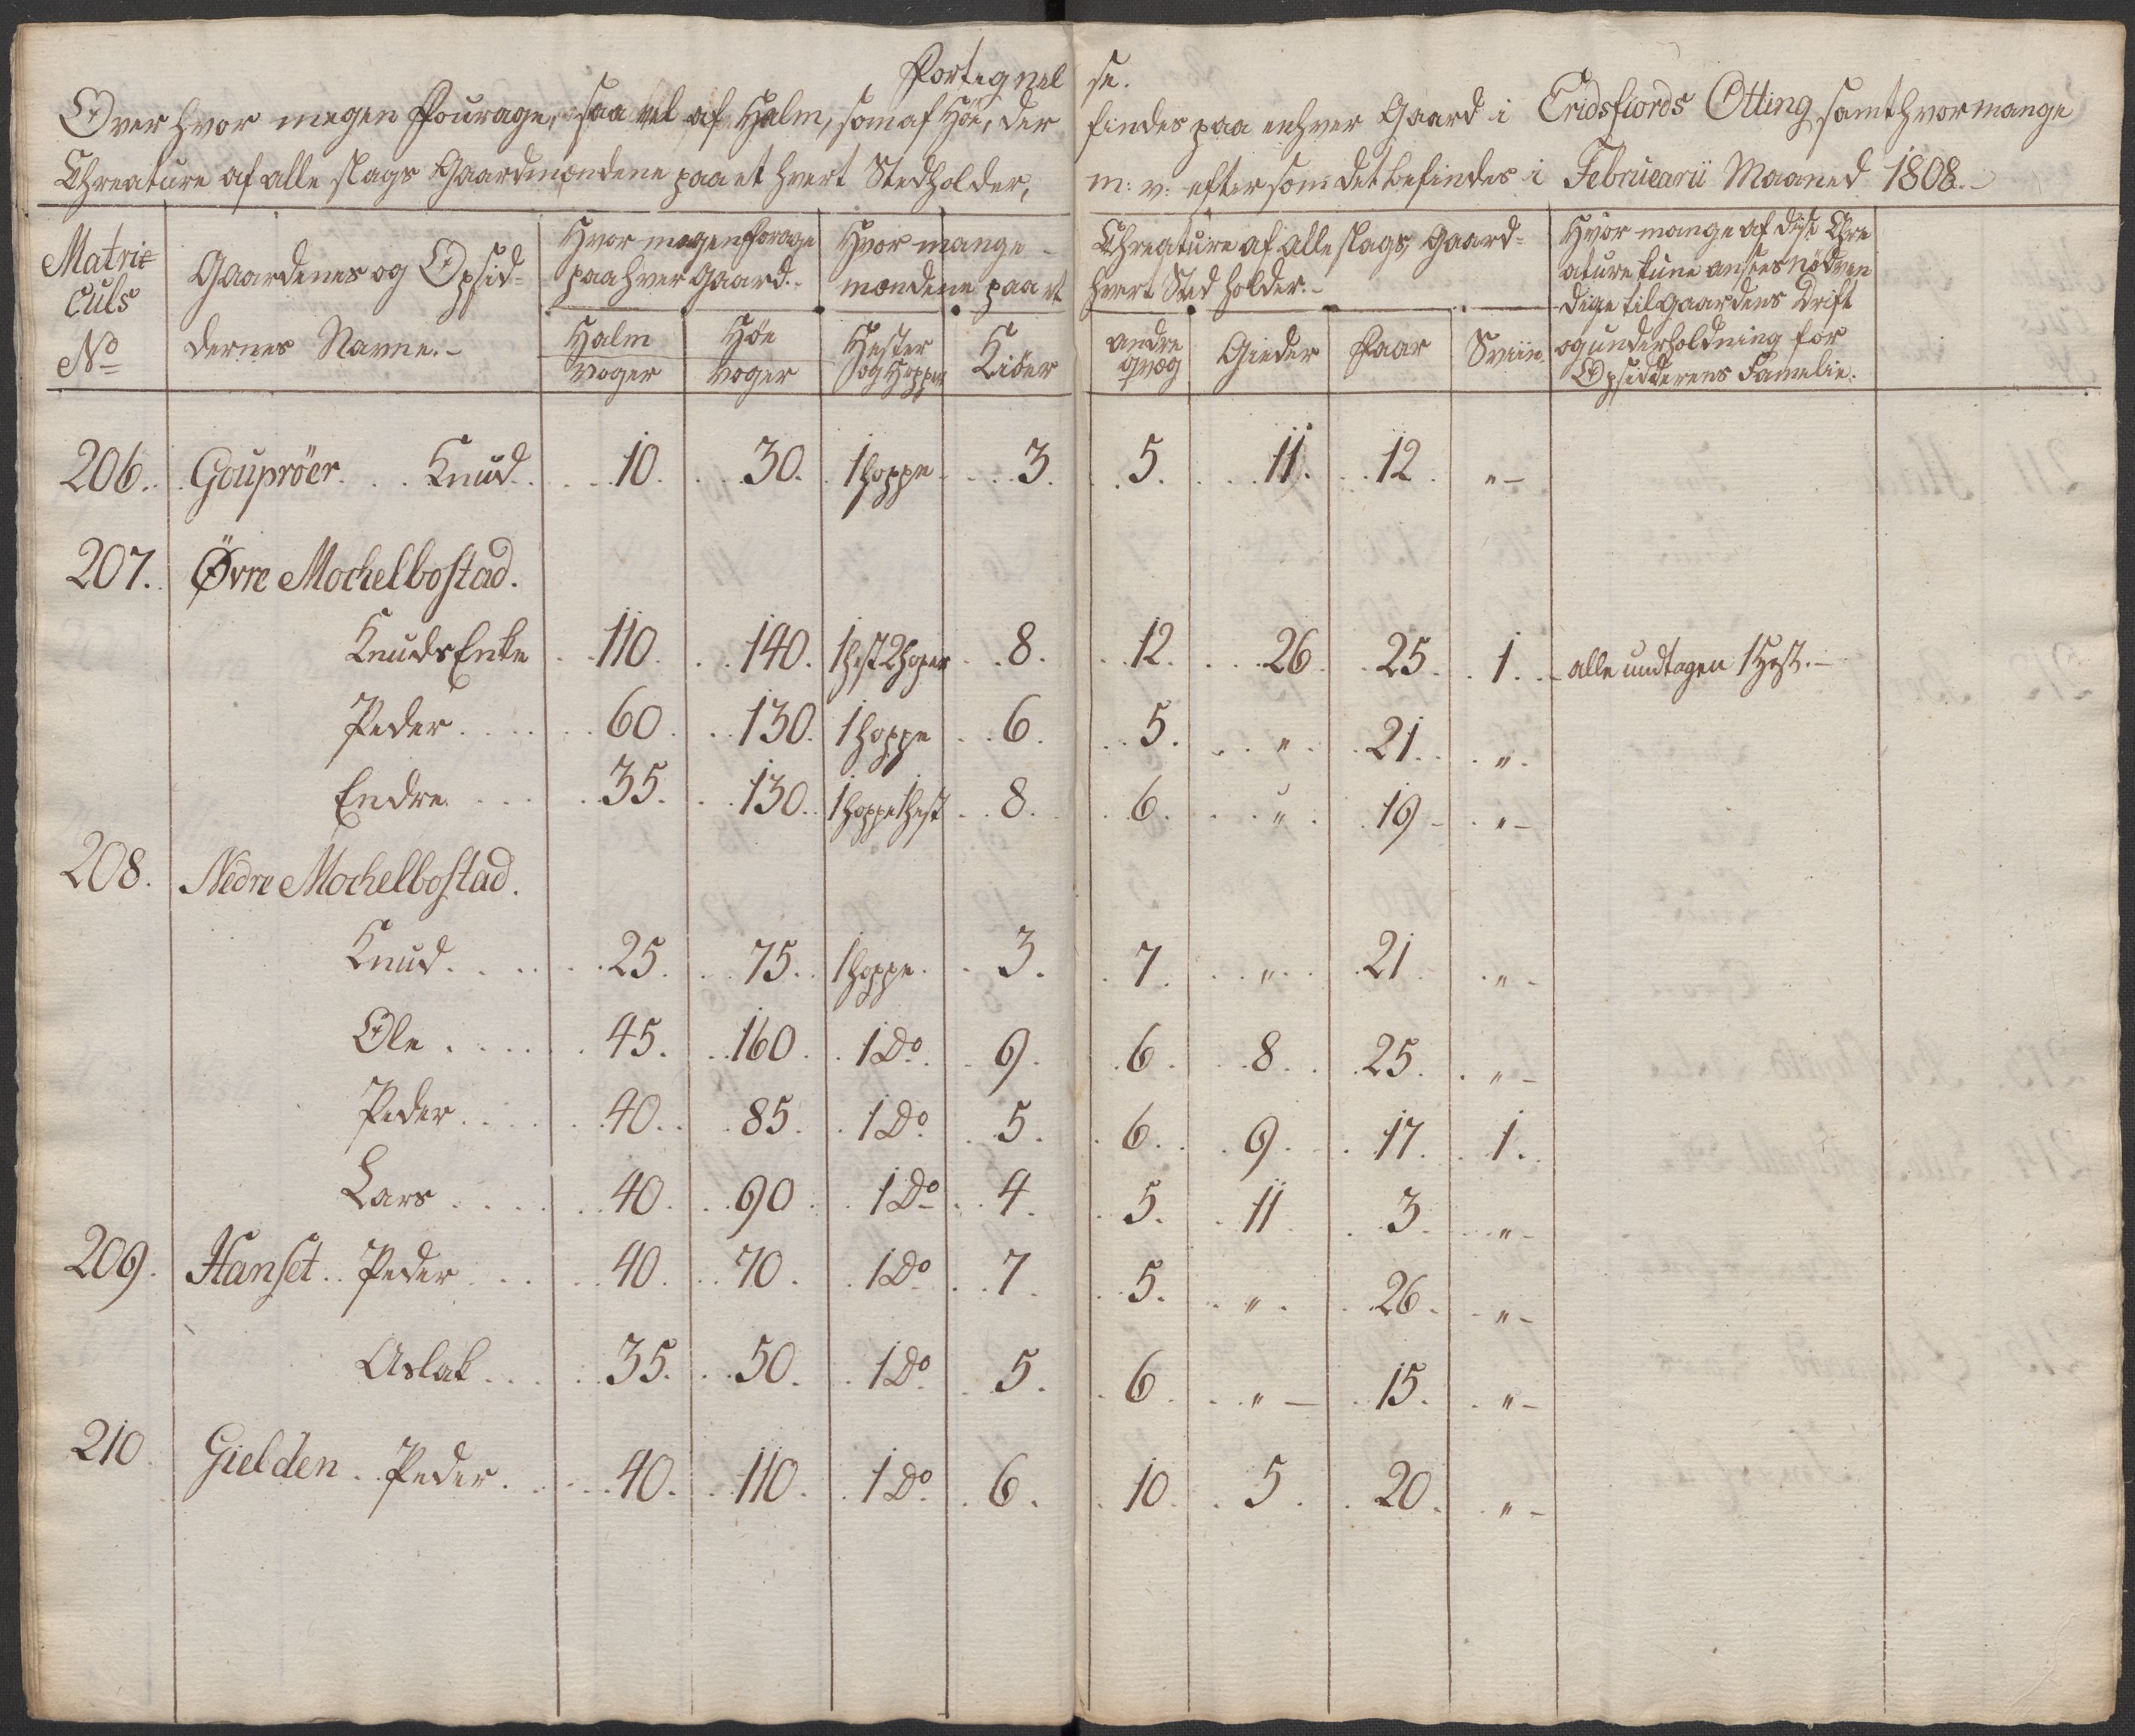 Fortegnelse.
Over hvor megen Fourage, saa vel af Halm, som af Höe, der findes paa enhver Gaard i Eridsfiords Otting samt hvor mange
Chreature af alle slags Gaardmændene paa et hvert Sted holder, m: v: efter som det befindes i Februarii Maaned 1808.
Matri=
Culs
No
Gaardenes og Opsid=
dernes Navne.
Hvor megen Forage
paa hver Gaard.
Halm
voger
Höe
voger
Hvor mange Chreature af alle slags Gaard=
mændene paa et hvert Sted holder.
Hester
og Hopper
Kiöer
andre
qvæg
Gieder
Faar
Sviin
Hvor mange af disse Chre
ature kune ansees nödven
dige til Gaardens Drift
og underholdning for
Opsidderens Famelie.
206. Goupröer. Knud. 10. 30. 1 hoppe 3. 5. 11. 12. "
207. Övre Mochelbostad.
Knuds Enke 110. 140. 1 hest 2 hoper 8. 12. 26. 25. 1. alle undtagen 1 Hest.
Peder 60. 130. 1 hoppe 6. 5. " 21. "
Endre 35. 130. 1 hoppe 1 hest 8. 6. " 19 "
208. Nedre Mochelbostad.
Knud. 25. 75. 1 hoppe. 3. 7. " 21 "
Ole 45. 160. 1 Do. 9. 6. 8. 25. "
Peder 40. 85. 1 Do. 5. 6. 9. 17. 1.
Lars 40. 90. 1 Do 4. 5. 11. 3. "
209. Hanset. Peder 40. 70. 1 Do 7. 5. " 26. "
Aslak 35. 50. 1 Do 5. 6. " 15. "
210. Gielden. Peder. 40. 110. 1 Do. 6. 10. 5. 20. "